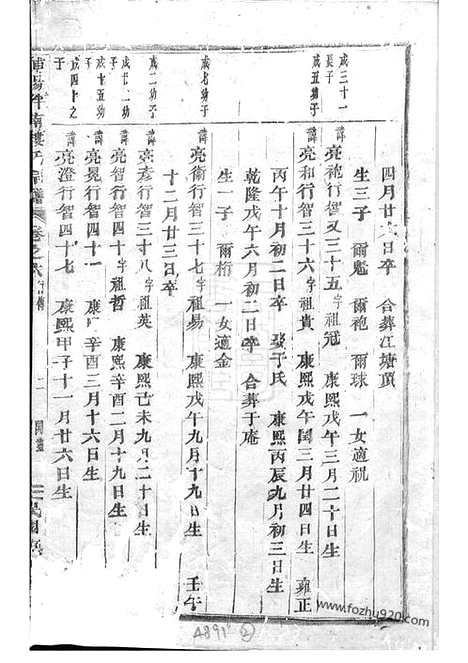 四月廿六日卒 合葬江塘頂
生三子 爾魁 爾袍 爾球 一女適祝
成三十一長子
諱亮袍行智又三十五字祖冠 康熙戊午三月二十日生
成五幼子
諱亮和行智三十六字祖貴 康熙戊午閏三月廿四日生 雍正
丙午十月初二日卒 娶于氏 康熙丙辰九月初三日生
乾隆戊午六月初二日卒 合葬于庵
生一子 爾桁 一女適金
成七幼子
諱亮衛行智三十七字祖易 康熙戊午九月十九日生 壬午
十二月廿三日卒
成二幼子
諱亮彥行智三十八字祖英 康熙己未九月二十日生
成廿二幼子
諱亮智行智四十字祖哲 康熙辛酉二月十九日生
成十五幼子
諱亮晃行智四十一 康熙辛酉三月十六日生
成四十之子
諱亮澄行智四十七 康熙甲子十一月廿六日生
卷之
www.fozhu920.com
A891 ②